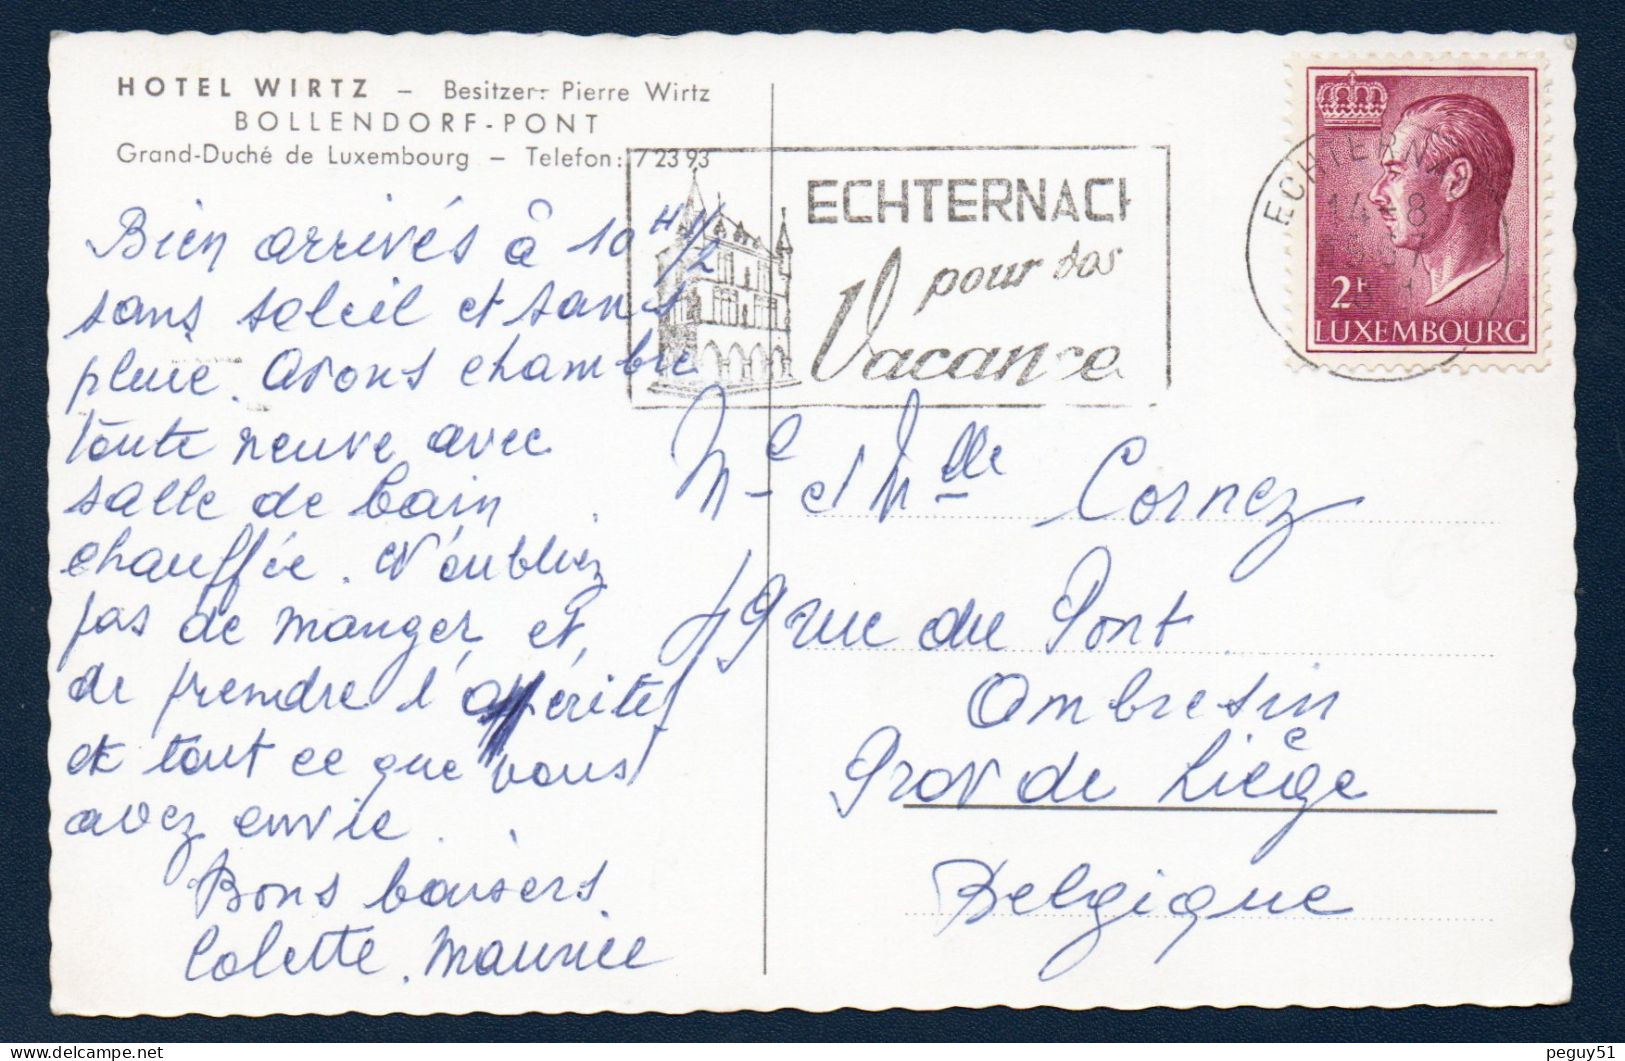 HOTEL WIRTZ – Besitzer: Pierre Wirtz
BOLLENDORF-PONT
Grand-Duché de Luxembourg – Telefon: 7 23 93
Bien arrivés à 10 H 1/2
sans soleil et sans
pluie. Avons chambre
toute neuve avec
salle de bain
chauffée. N'oubliez
pas de manger et
de prendre l'apéritif
et tout ce que vous
avez envie.
Bons baisers
Colette. Maurice
ECHTERNACH
pour vos
Vacance
ECHTERNA
14 - 8
2F
LUXEMBOURG
Me et Melle Cornez
49 rue du Pont
Ambresin
Prov de Liège
Belgique
peguy51